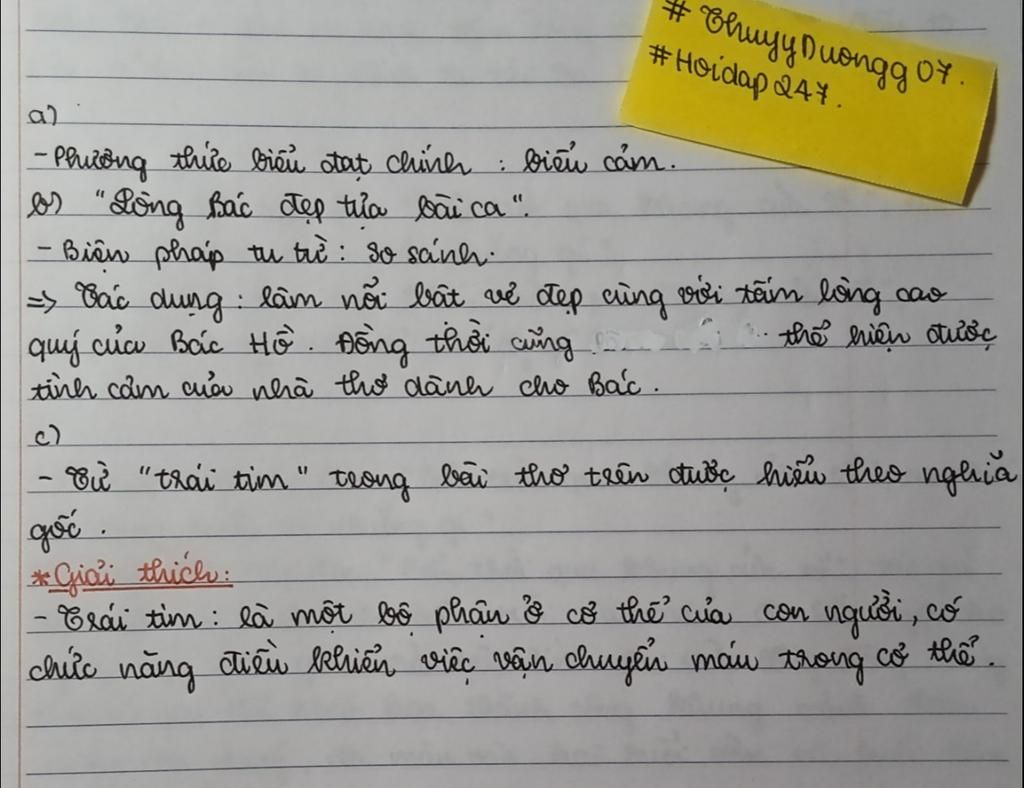 # ThuyyDuongg07.
#Hoidap247.
a)
- Phương thức biểu đạt chính : biểu cảm.
b) "Lòng Bác đẹp tựa bài ca".
- Biện pháp tu từ : so sánh.
=> Tác dụng : làm nổi bật vẻ đẹp cùng với tấm lòng cao
quý của Bác Hồ. Đồng thời cũng thể hiện được
tình cảm của nhà thơ dành cho Bác.
c)
- Từ "trái tim" trong bài thơ trên được hiểu theo nghĩa
gốc.
*Giải thích:
- Trái tim : là một bộ phận ở cơ thể của con người, có
chức năng điều khiển việc vận chuyển máu trong cơ thể.